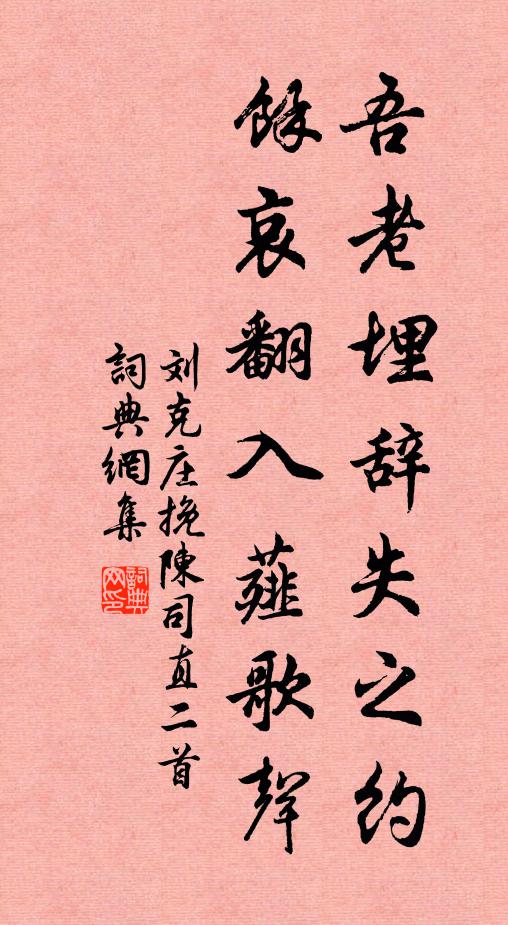 吾老埋辞失之约
餘哀翻入薤歌聲
刘克庄挽陳司直二首
詞典網集
詞典网印